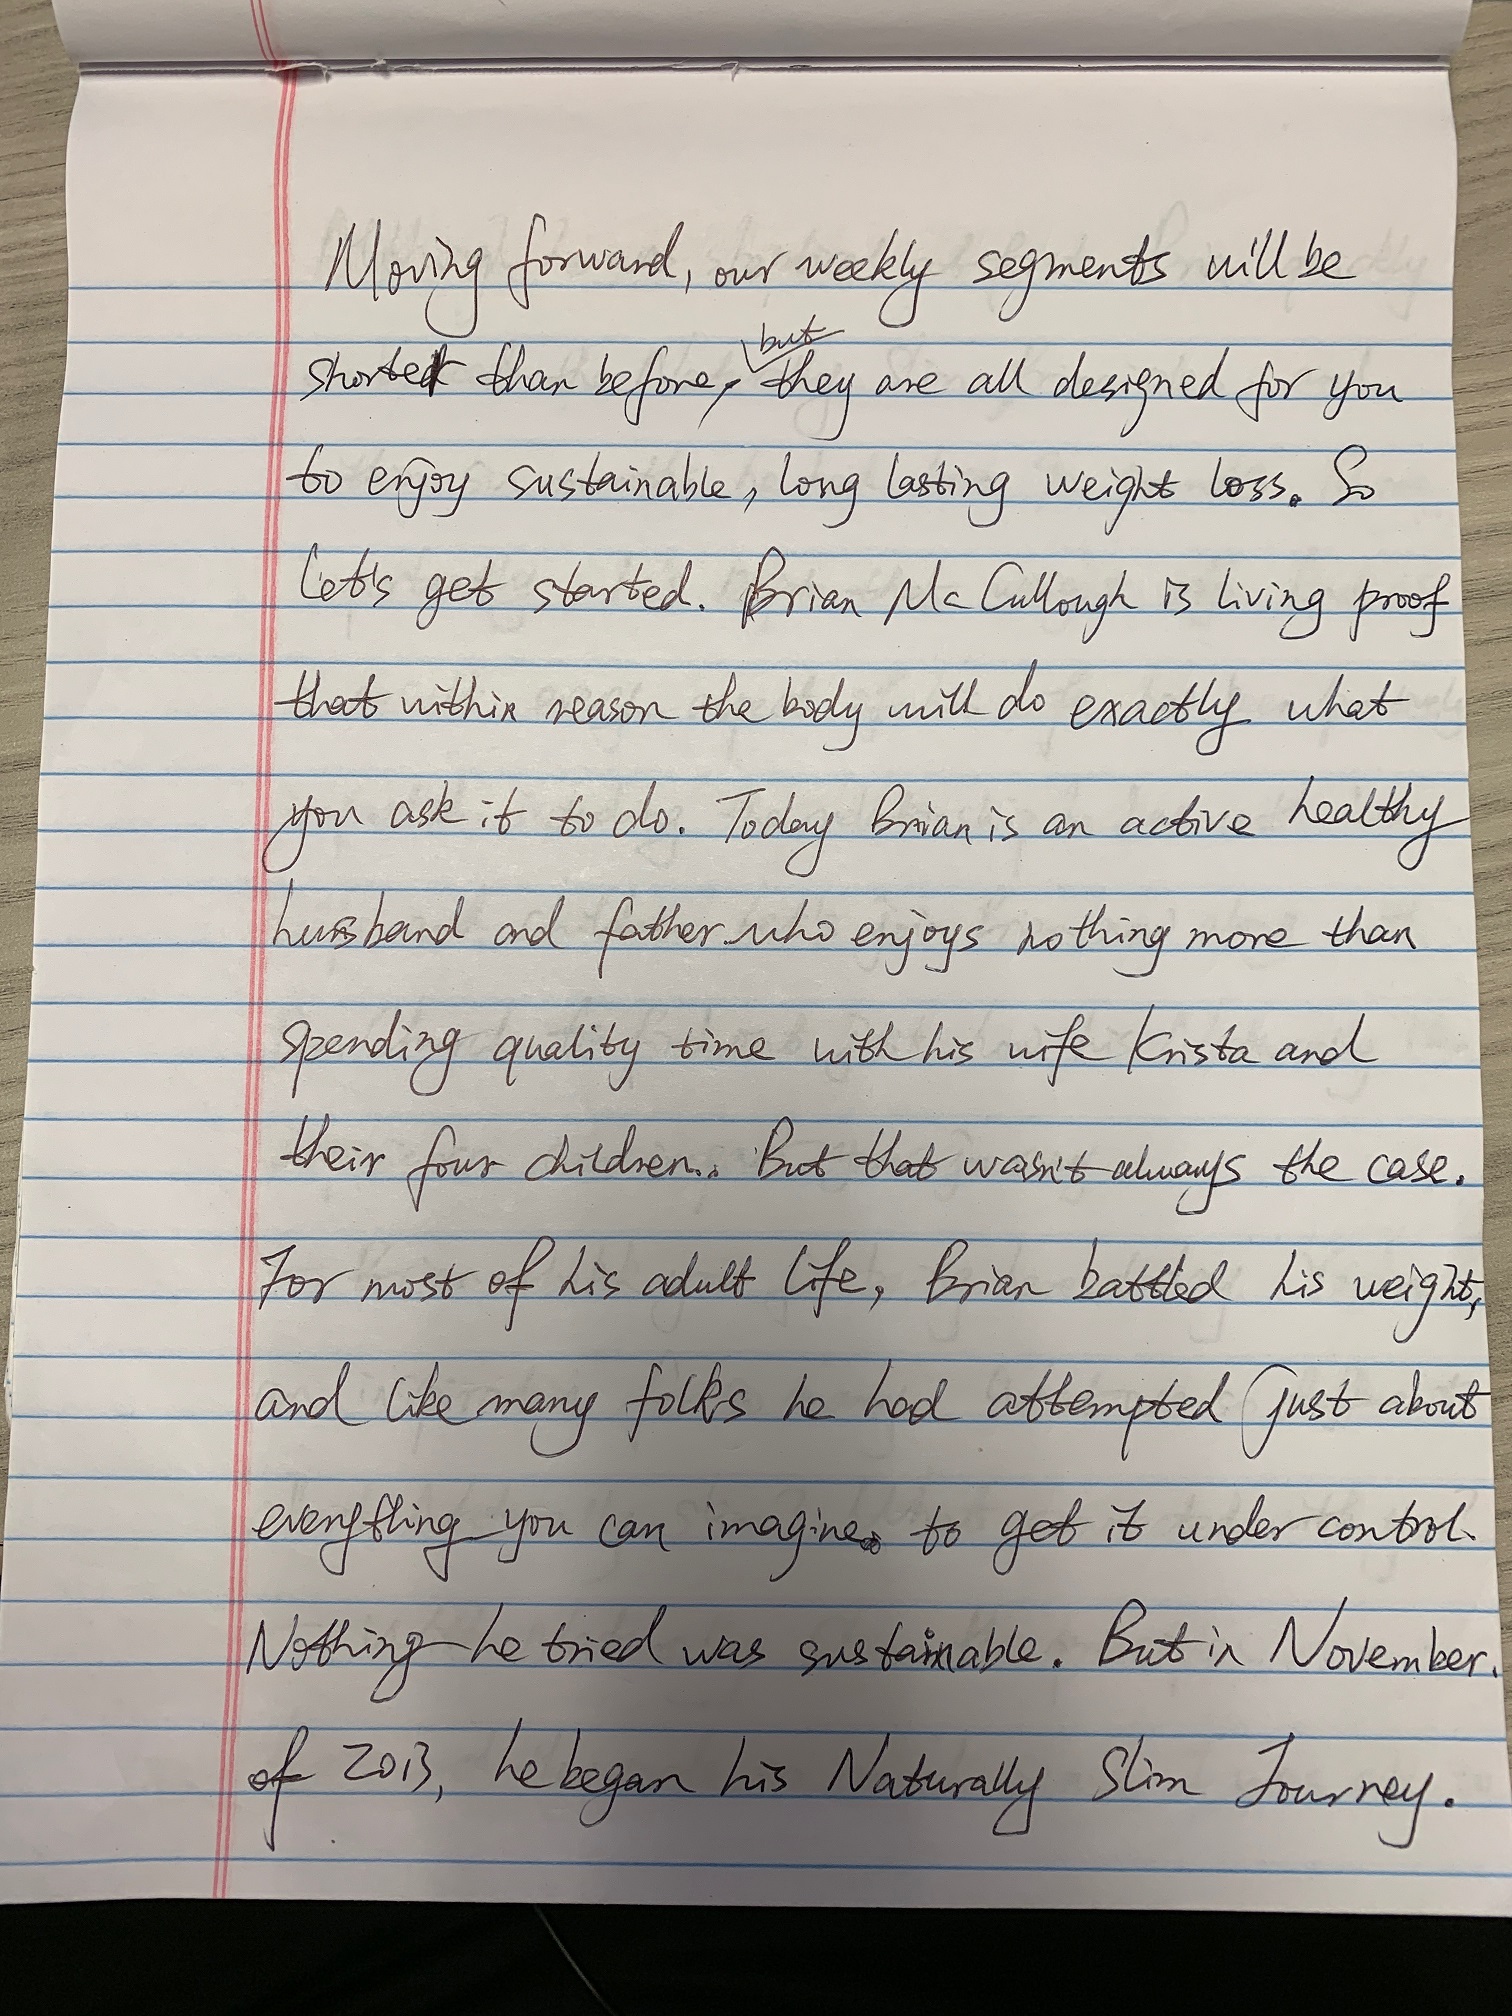 Moving forward, our weekly segments will be
shorter than before, but they are all designed for you
to enjoy sustainable, long lasting weight loss. So
let's get started. Brian McCullough is living proof
that within reason the body will do exactly what
you ask it to do. Today Brian is an active healthy
husband and father who enjoys nothing more than
spending quality time with his wife Krista and
their four children.. But that wasn't always the case.
For most of his adult life, Brian battled his weight,
and like many folks he had attempted just about
everything you can imagine to get it under control.
Nothing he tried was sustainable. But in November.
of 2013, he began his Naturally Slim Journey.